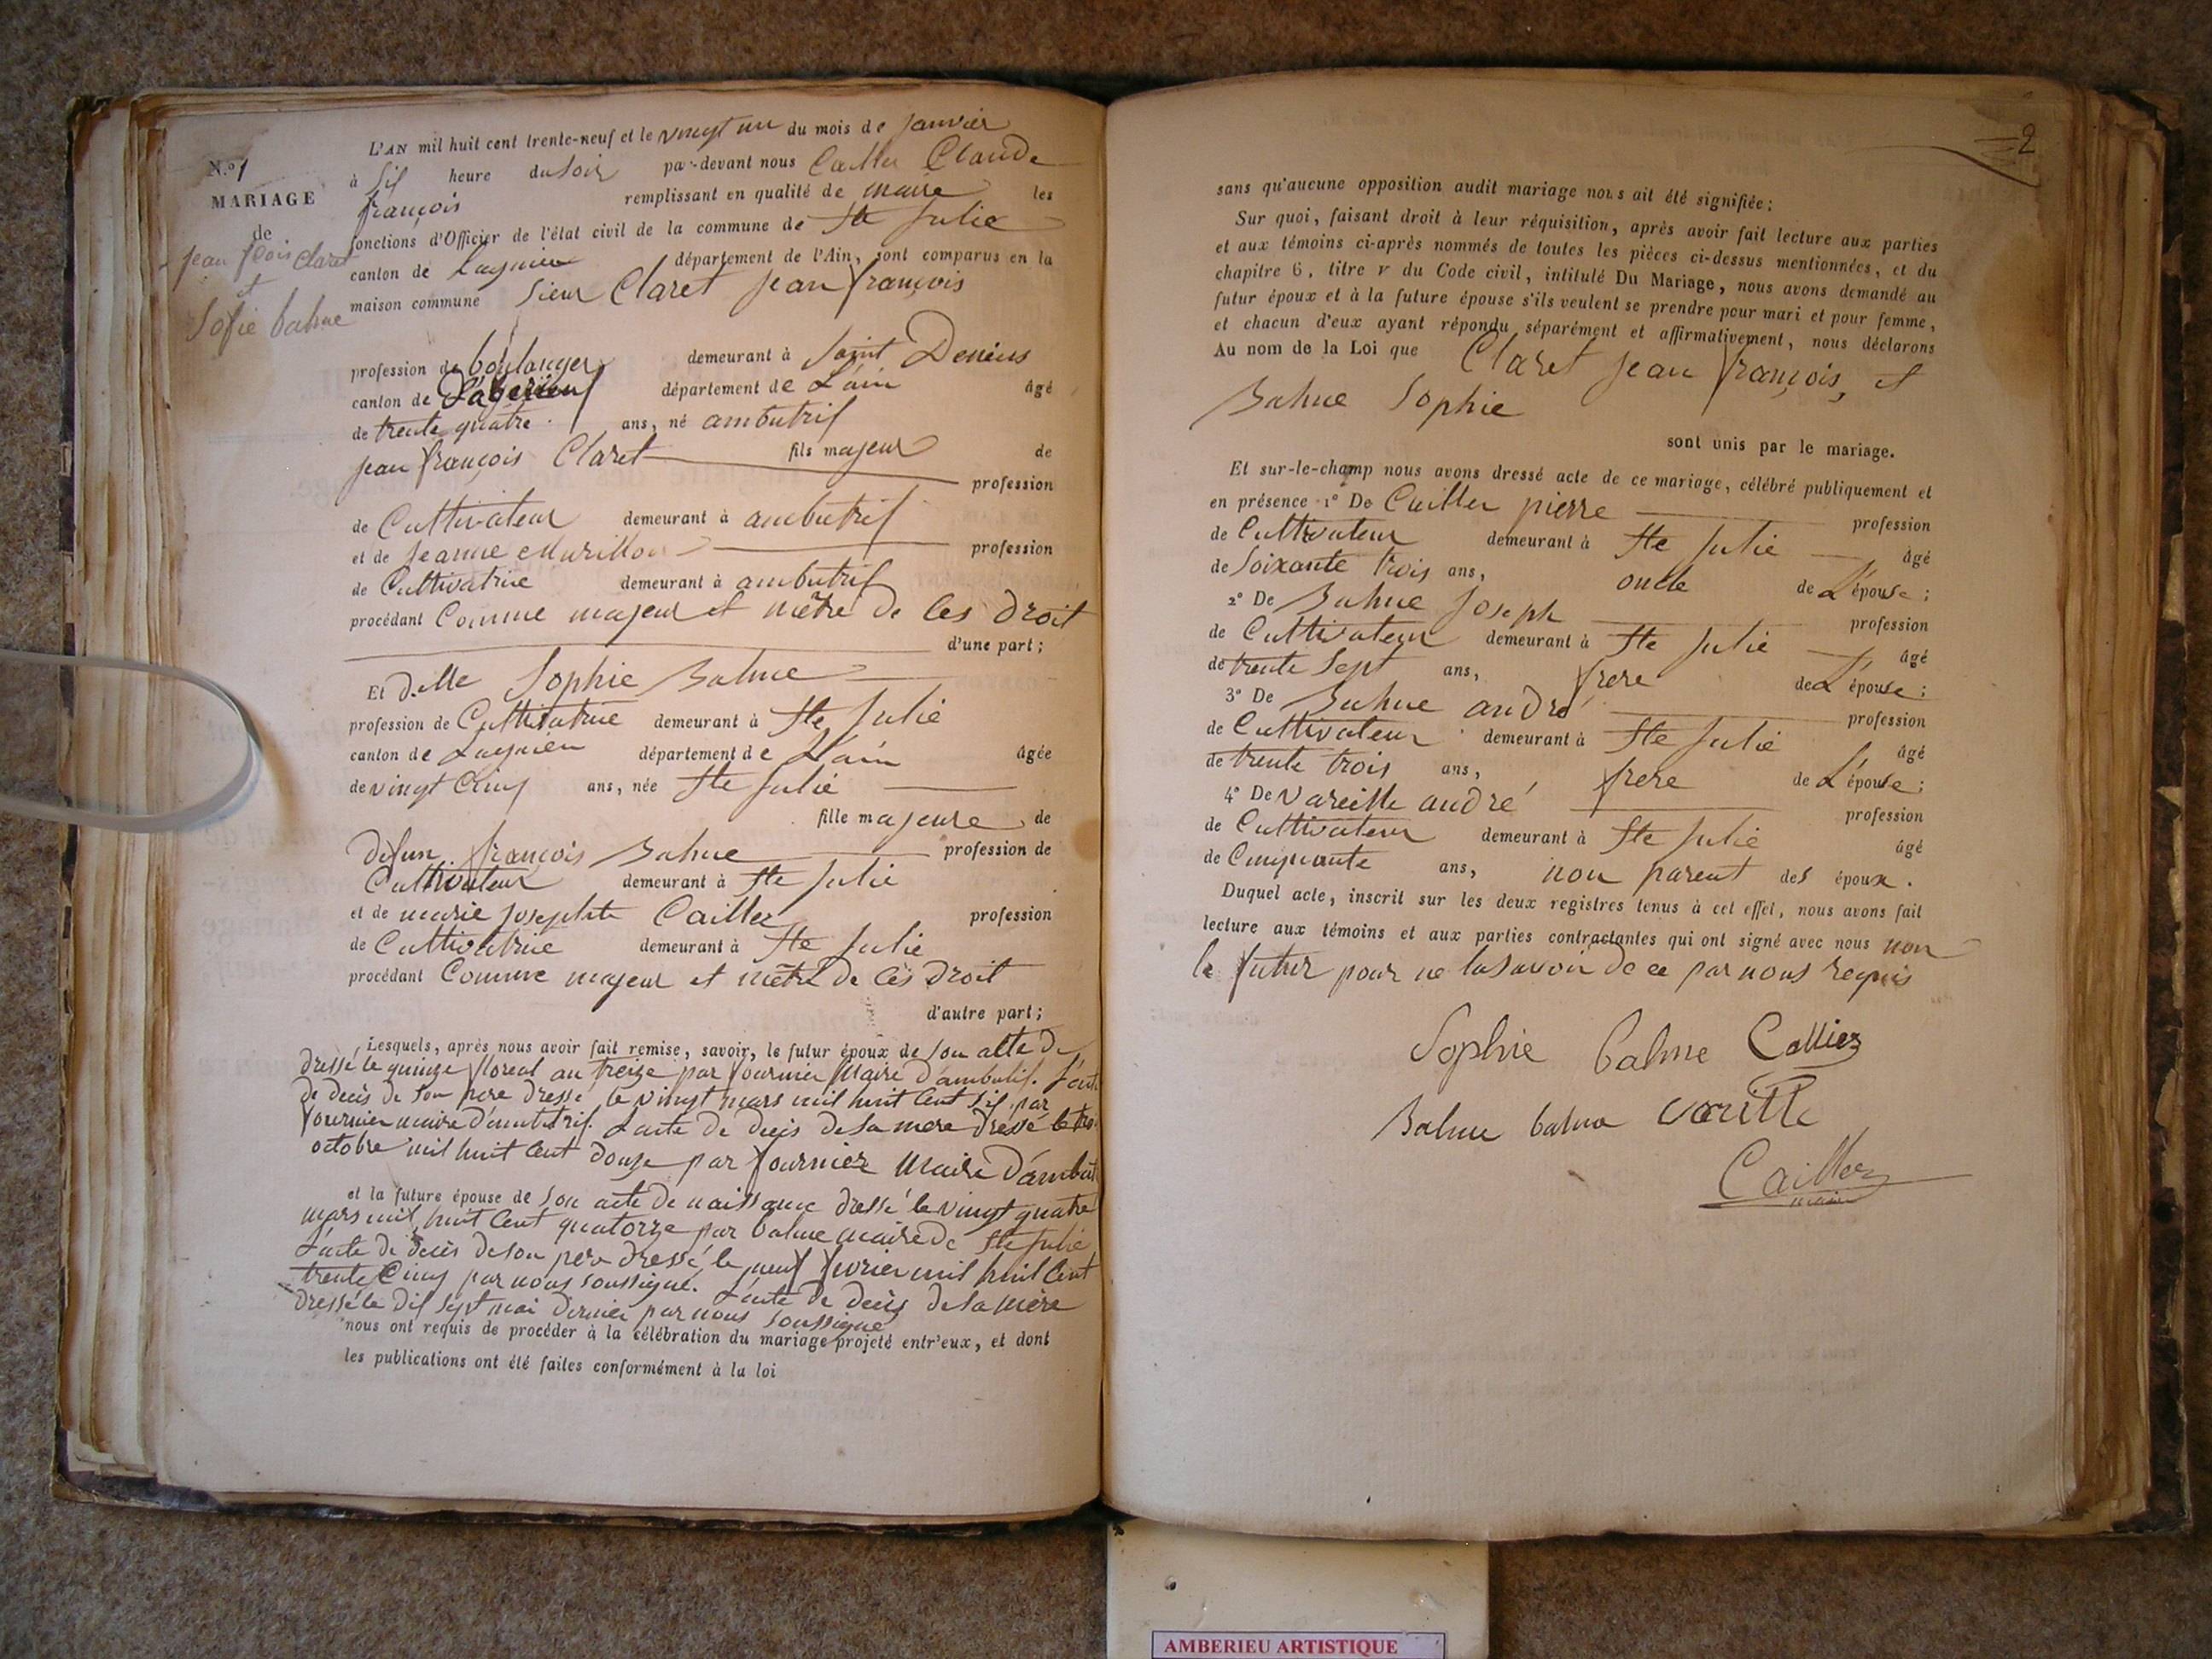 N.º 1
MARIAGE
de
jean fçois Claret
et
Sofie balme
L'AN mil huit cent trente-neuf et le vingt un du mois de janvier
à Sis heure du Soir par-devant nous Cailler Claude
françois remplissant en qualité de maire les
fonctions d'Officier de l'état civil de la commune de Ste Julie
canton de Lagnieu département de l'Ain, sont comparus en la
maison commune Sieur Claret jean françois
profession de boulanger demeurant à Saint Denius
canton de département de L'ain âgé
de trente quatre ans, né ambutrif
fils majeur de
jean françois Claret profession
de Cultivateur demeurant à ambutrif
et de jeanne profession
de Cultivatrice demeurant à ambutrif
procédant Comme majeur et mètre de Ces droit
d'une part;
Et d.elle Sophie Balme
profession de Cultivatrice demeurant à Ste Julie
canton de Lagnieu département de L'ain âgée
de vingt Cinq ans, née Ste Julie
fille majeure de
defun françois Balme profession de
Cultivateur demeurant à Ste Julie
et de marie josephte Cailler profession
de Cultivatrice demeurant à Ste Julie
procédant Comme majeur et mètre de Ces droit
d'autre part;
Lesquels, après nous avoir fait remise, savoir, le futur époux de Son acte de
dressé le quinze floreal an treize par fournier Maire d'ambutif. L'acte
de decès de Son pere dressé le vingt mars mil huit Cent Sis par
fournier maire d'ambutrif. L'acte de decès de Sa mere dressé le
octobre mil huit Cent douze par fournier Maire d'ambut
et la future épouse de Son acte de naissance dressé le vingt quatre
mars mil huit Cent quatorze par balme maire de Ste Julie
L'acte de decès de Son pere dressé le neuf fevrier mil huit Cent
trente Cinq par nous soussigné. L'acte de decès de Sa mère
dressé le dis Sept mai dernier par nous Soussigné
nous ont requis de procéder à la célébration du mariage projeté entr'eux, et dont
les publications ont été faites conformément à la loi
2
sans qu'aucune opposition audit mariage nous ait été signifiée;
Sur quoi, faisant droit à leur réquisition, après avoir fait lecture aux parties
et aux témoins ci-après nommés de toutes les pièces ci-dessus mentionnées, et du
chapitre 6, titre V du Code civil, intitulé Du Mariage, nous avons demandé au
futur époux et à la future épouse s'ils veulent se prendre pour mari et pour femme,
et chacun d'eux ayant répondu séparément et affirmativement, nous déclarons
Au nom de la Loi que Claret jean françois, et
Balme Sophie
sont unis par le mariage.
Et sur-le-champ nous avons dressé acte de ce mariage, célébré publiquement et
en présence 1º De Cailler pierre profession
de Cultivateur demeurant à Ste Julie âgé
de Soixante trois ans, oncle de L'épouse;
2º De Balme Joseph profession
de Cultivateur demeurant à Ste Julie âgé
de trente Sept ans, frere de L'épouse;
3º De Balme andré profession
de Cultivateur demeurant à Ste Julie âgé
de trente trois ans, frere de L'épouse;
4º De Vareille andré profession
de Cultivateur demeurant à Ste Julie âgé
de Cinquante ans, non parent des époux.
Duquel acte, inscrit sur les deux registres tenus à cet effet, nous avons fait
lecture aux témoins et aux parties contractantes qui ont signé avec nous non
le futur pour ne la Savoir de ce par nous requis
Sophie balme Cailler
Balme balme
Cailler
maire
AMBERIEU ARTISTIQUE